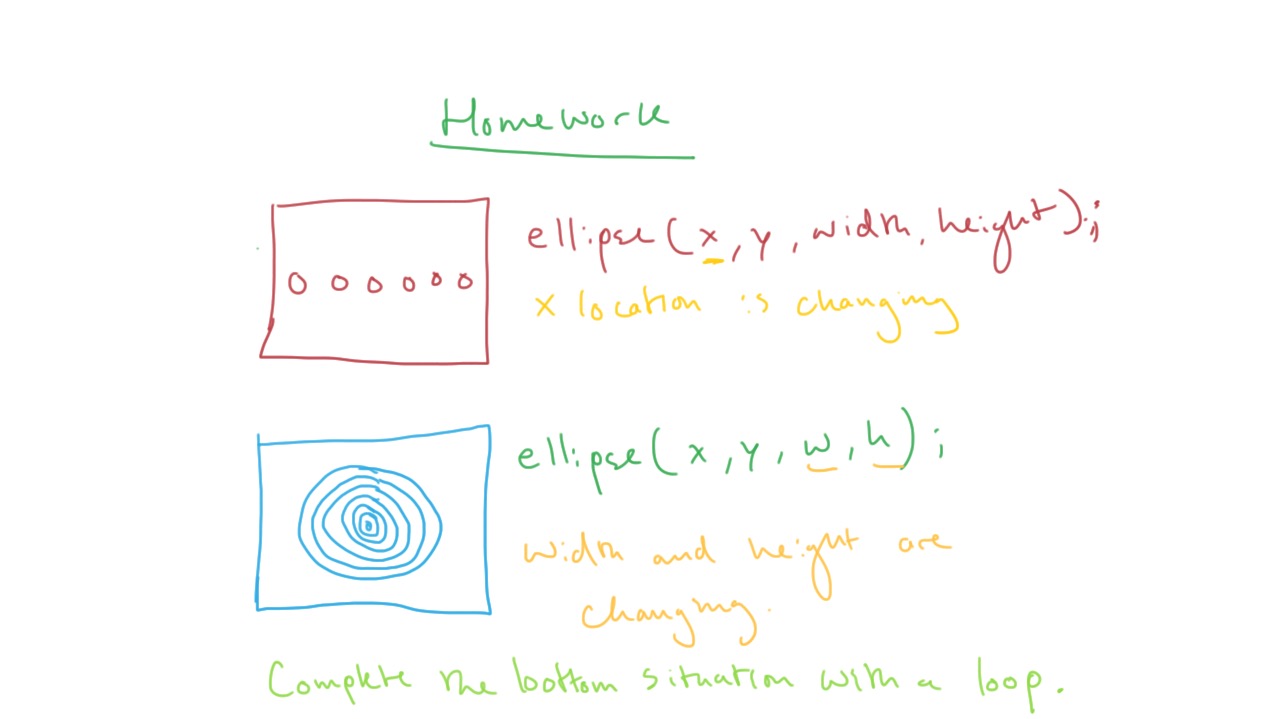 Homework
ellipse(x, y, width, height);
x location is changing
ellipse(x, y, w, h);
width and height are
changing.
Complete the bottom situation with a loop.